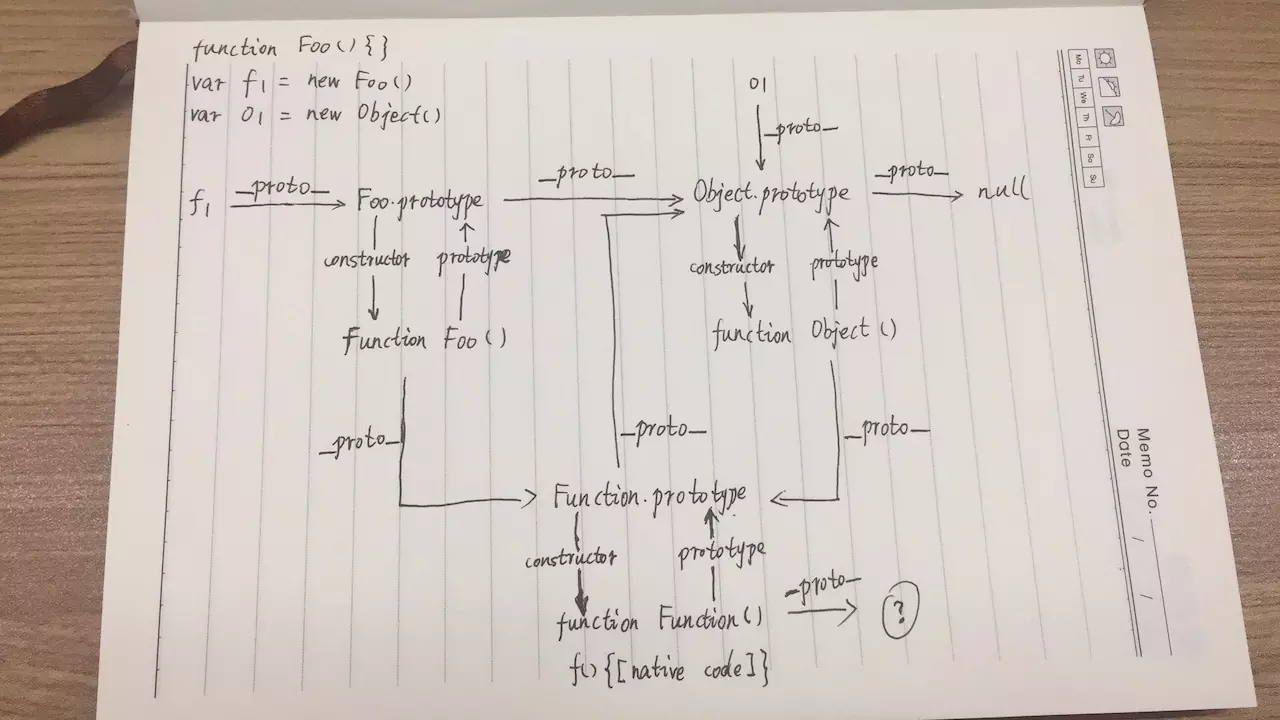 function Foo(){}
var f1 = new Foo()
var O1 = new Object()
O1
_proto_
f1 _proto_ Foo.prototype _proto_ Object.prototype _proto_ null
constructor prototype
constructor prototype
Function Foo()
function Object()
_proto_
_proto_
_proto_
Function.prototype
constructor prototype
function Function() _proto_ ?
f(){[native code]}
Mo Tu We Th Fr Sa Su
Memo No.
Date / /